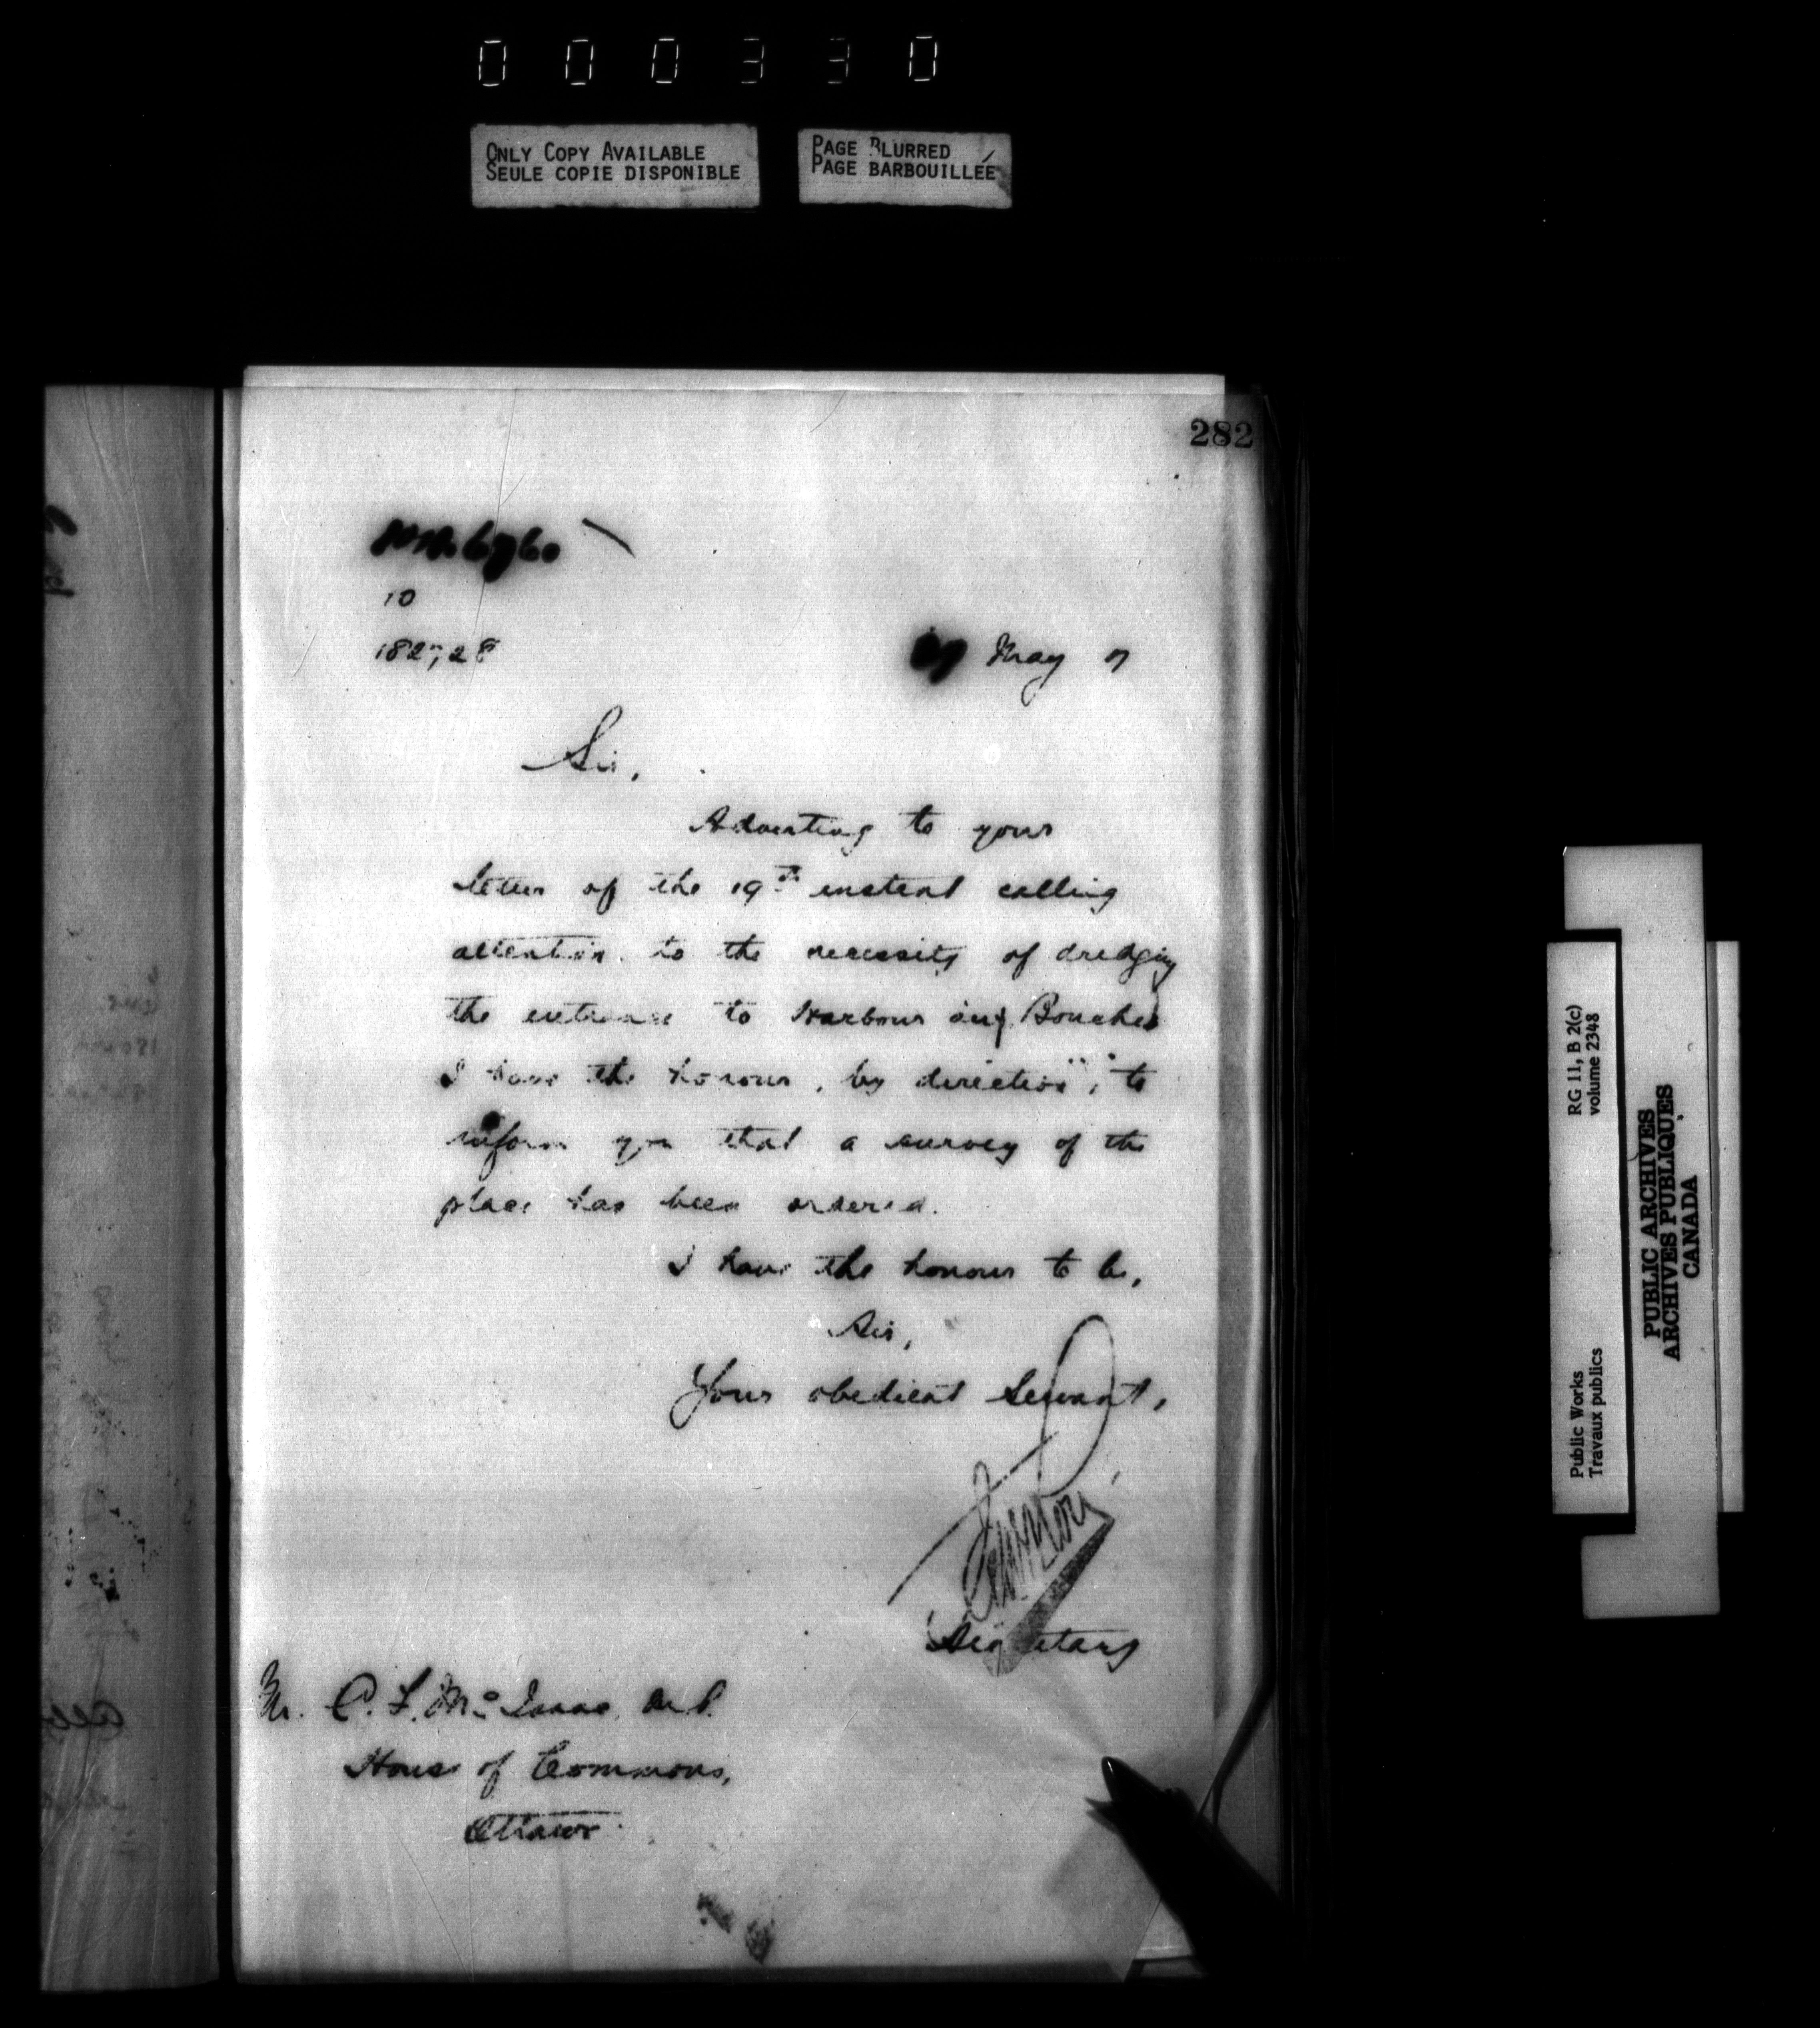 000330
ONLY COPY AVAILABLE
SEULE COPIE DISPONIBLE
PAGE BLURRED
PAGE BARBOUILLÉE
282
10
1827,28
May 7
Sir,
Adverting to your
letter of the 19th instant calling
attention to the necessity of dredging
the entrance to Harbour aux Bouches
I have the honour, by direction, to
inform you that a survey of the
place has been ordered.
I have the honour to be,
Sir,
Your obedient Servant,
Secretary
Mr. C. F. McIsaac M.P.
House of Commons,
Ottawa.
RG 11, B 2(c)
volume 2348
Public Works
Travaux publics
PUBLIC ARCHIVES
ARCHIVES PUBLIQUES
CANADA